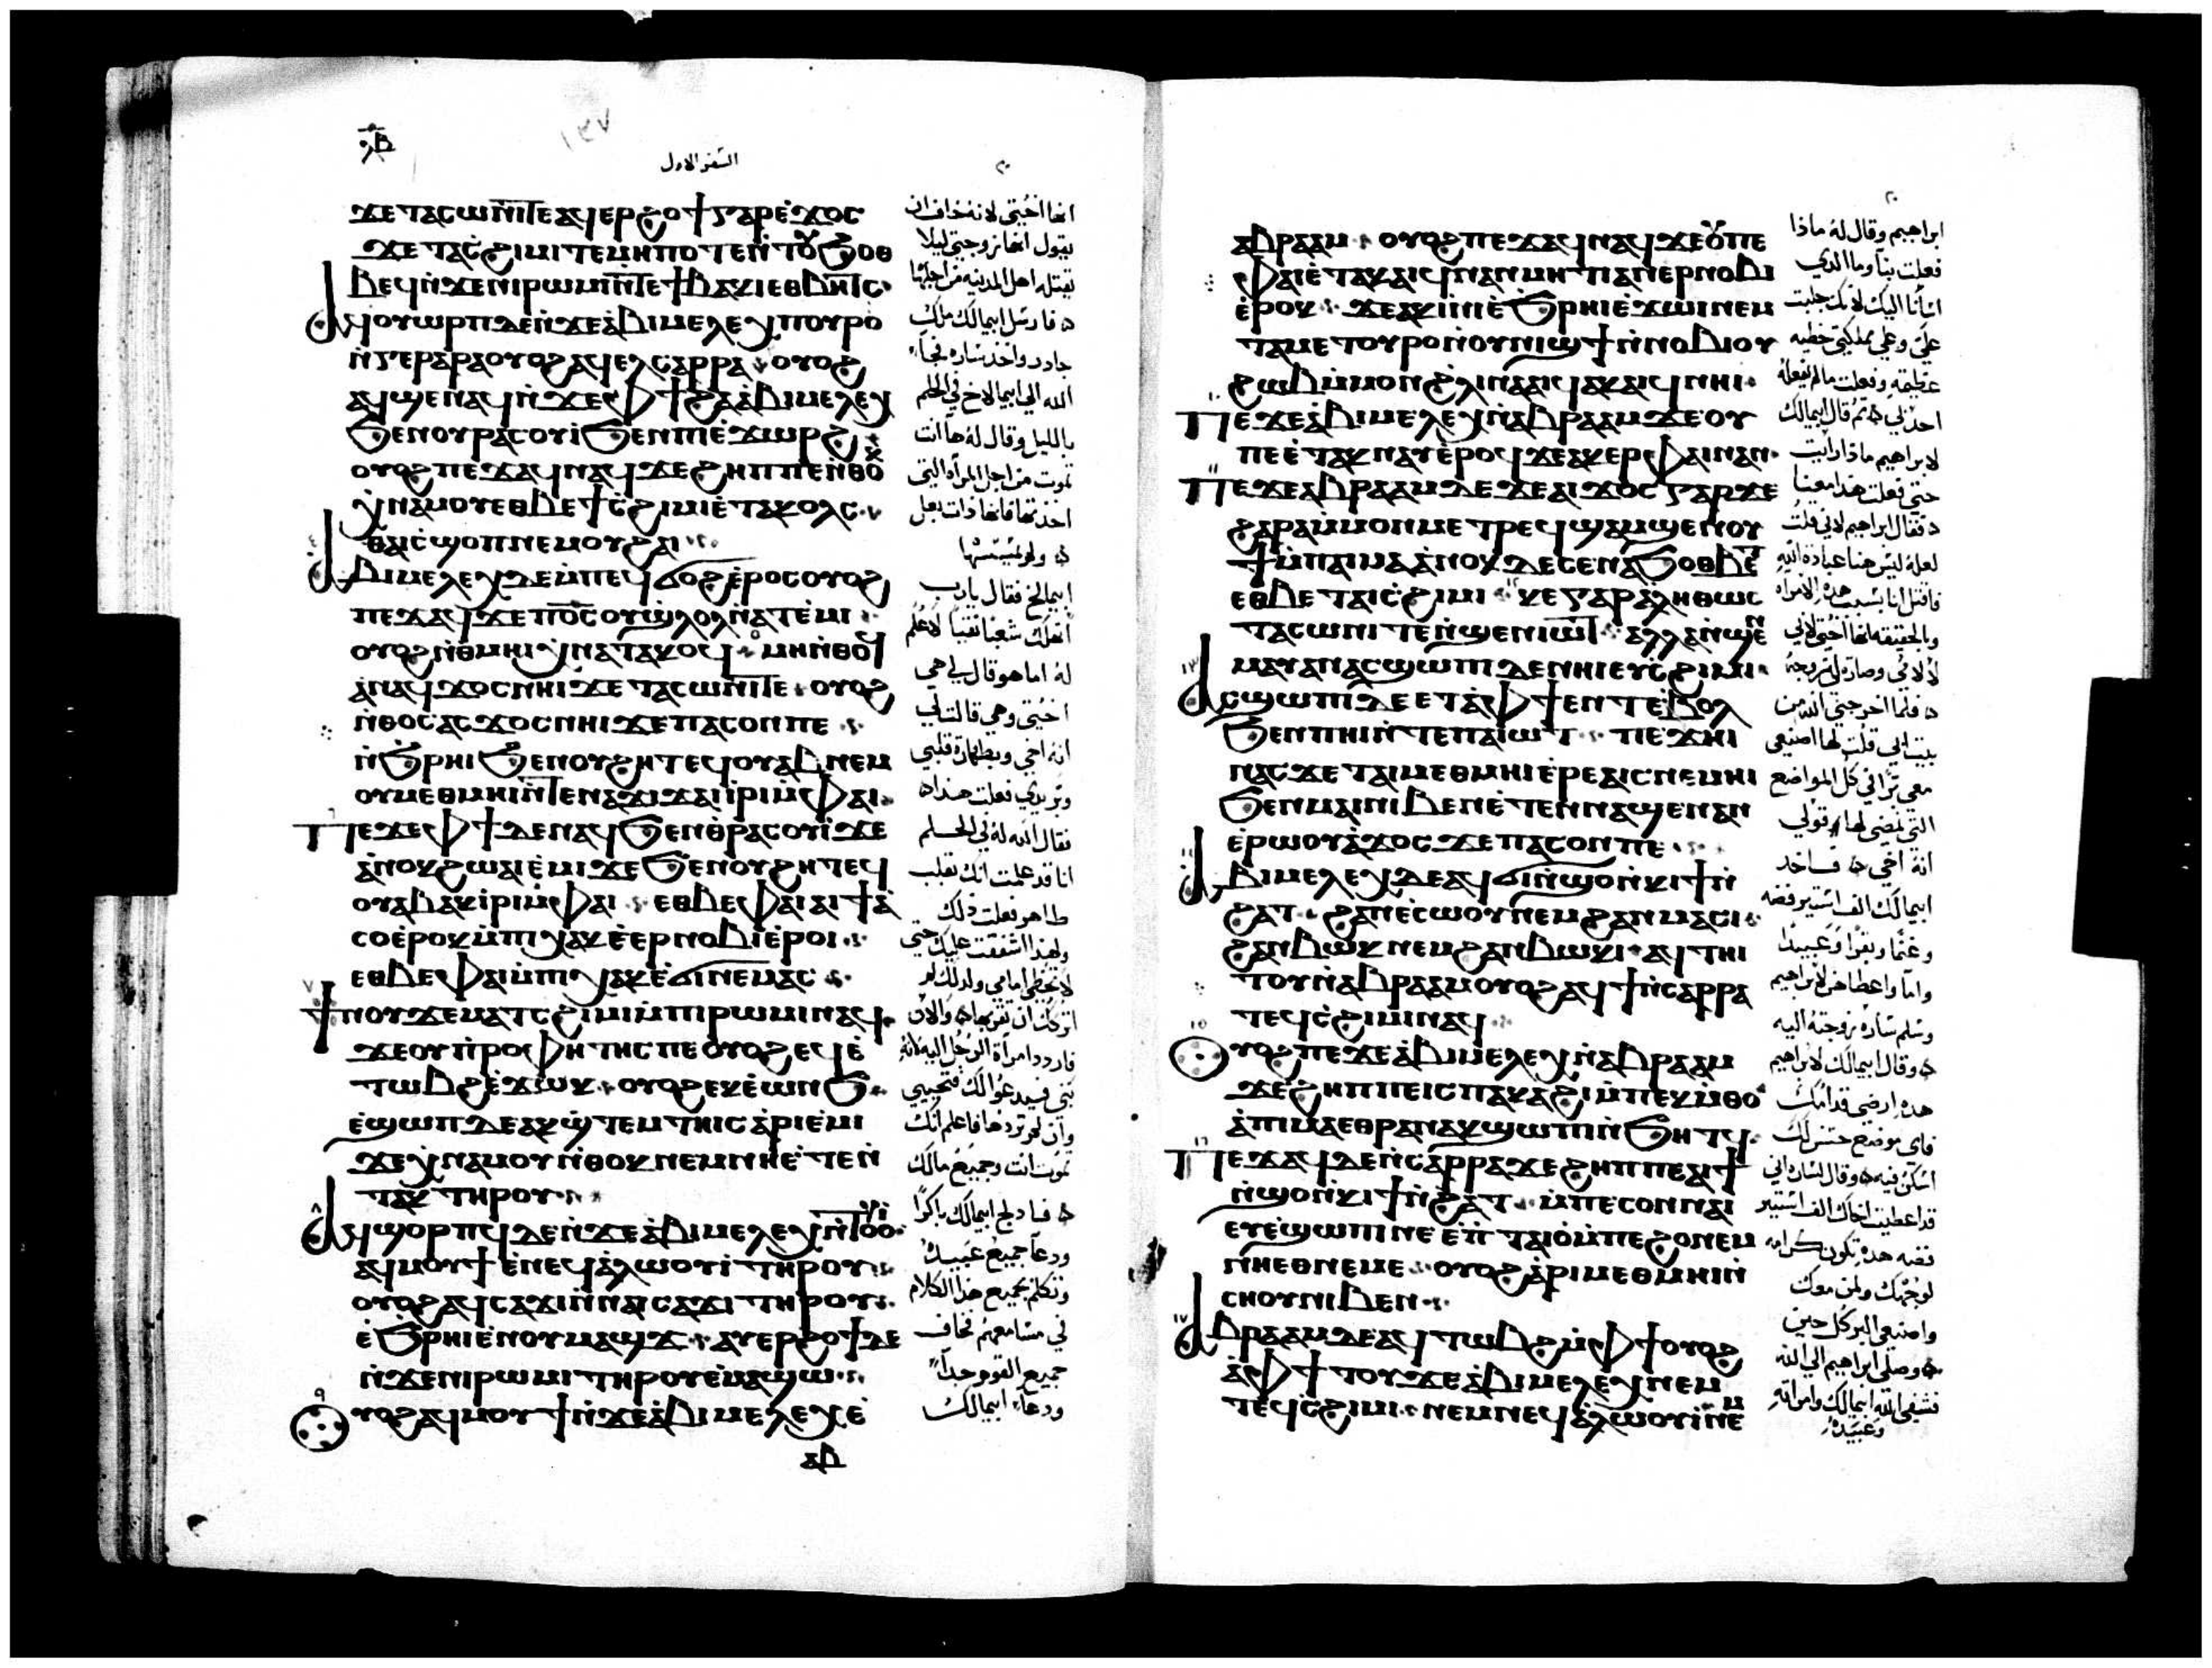 ⲟ̅ⲃ̅
السفر الاول
٢٠
ϫⲉ ⲧⲁⲥⲱⲛⲓ ⲧⲉ ⲁϥⲉⲣϩⲟϯ ⲅⲁⲣ ⲉ̀ϫⲟⲥ
ϫⲉ ⲧⲁⲥ̀ϩⲓⲙⲓ ⲧⲉ ⲙⲏⲡⲟⲧⲉ ⲛ̀ⲧⲟⲩϧⲟⲑ
ⲃⲉϥ ⲛ̀ϫⲉ ⲛⲓⲣⲱⲙⲓ ⲛ̀ⲧⲉ ϯⲃⲁⲕⲓ ⲉⲑⲃⲏⲧⲥ
ⲁϥⲟⲩⲱⲣⲡ ⲇⲉ ⲛ̀ϫⲉ ⲁ̀ⲃⲓⲙⲉⲗⲉⲭ ⲡⲟⲩⲣⲟ
ⲛ̀ⲅⲉⲣⲁⲣⲁ ⲟⲩⲟϩ ⲁϥⲉⲗ ⲥⲁⲣⲣⲁ ⲟⲩⲟϩ
ⲁϥϣⲉⲛⲁϥ ⲛ̀ϫⲉ ⲫϯ ϩⲁ ⲁ̀ⲃⲓⲙⲉⲗⲉⲭ
ϧⲉⲛ ⲟⲩⲣⲁⲥⲟⲩⲓ̀ ϧⲉⲛ ⲡⲓⲉ̀ϫⲱⲣϩ
ⲟⲩⲟϩ ⲡⲉϫⲁϥ ⲛⲁϥ ϫⲉ ϩⲏⲡⲡⲉ ⲛ̀ⲑⲟⲕ
ⲭ̀ⲛⲁⲙⲟⲩ ⲉⲑⲃⲉ ϯⲥ̀ϩⲓⲙⲓ ⲉ̀ⲧⲁⲕⲟⲗⲥ
ⲑⲁⲓ ⲥ̀ϣⲟⲡ ⲛⲉⲙ ⲟⲩϩⲁⲓ
ⲁⲃⲓⲙⲉⲗⲉⲭ ⲇⲉ ⲙ̀ⲡⲉϥϭⲟϩ ⲉ̀ⲣⲟⲥ ⲟⲩⲟϩ
ⲡⲉϫⲁϥ ϫⲉ ⲡⲟ̅ⲥ̅ ⲟⲩϣ̀ⲗⲟⲗ ⲛ̀ⲁⲧⲉ̀ⲙⲓ
ⲟⲩⲟϩ ⲛ̀ⲑⲙⲏⲓ ⲭ̀ⲛⲁⲧⲁⲕⲟϥ ⲙⲏ ⲛ̀ⲑⲟϥ
ⲁⲛ ⲁϥϫⲟⲥ ⲛⲏⲓ ϫⲉ ⲧⲁⲥⲱⲛⲓ ⲧⲉ ⲟⲩⲟϩ
ⲛ̀ⲑⲟⲥ ⲁⲥϫⲟⲥ ⲛⲏⲓ ϫⲉ ⲡⲁⲥⲟⲛ ⲡⲉ
ⲛ̀ϧⲣⲏⲓ ϧⲉⲛ ⲟⲩϩⲏⲧ ⲉϥⲟⲩⲁⲃ ⲛⲉⲙ
ⲟⲩⲙⲉⲑⲙⲏⲓ ⲛ̀ⲧⲉ ⲛⲁϫⲓϫ ⲁⲓⲓ̀ⲣⲓ ⲙ̀ⲫⲁⲓ
ⲡⲉϫⲉ ⲫϯ ⲇⲉ ⲛⲁϥ ϧⲉⲛ ⲑ̀ⲣⲁⲥⲟⲩⲓ̀ ϫⲉ
ⲁ̀ⲛⲟⲕ ϩⲱ ⲁⲓⲉ̀ⲙⲓ ϫⲉ ϧⲉⲛ ⲟⲩϩⲏⲧ ⲉϥ
ⲟⲩⲁⲃ ⲁⲕⲓ̀ⲣⲓ ⲙ̀ⲫⲁⲓ ⲉⲑⲃⲉ ⲫⲁⲓ ⲁⲓϯⲁ̀
ⲥⲟ ⲉ̀ⲣⲟⲕ ⲙ̀ⲡⲓⲭⲁⲕ ⲉ̀ⲉⲣⲛⲟⲃⲓ ⲉ̀ⲣⲟⲓ
ⲉⲑⲃⲉ ⲫⲁⲓ ⲙ̀ⲡⲓⲭⲁⲕ ⲉ̀ϭⲓ ⲛⲉⲙⲁⲥ
ϯⲛⲟⲩ ϫⲉ ⲙⲁ ⲧⲥ̀ϩⲓⲙⲓ ⲙ̀ⲡⲓⲣⲱⲙⲓ ⲛⲁϥ
ϫⲉ ⲟⲩⲡ̀ⲣⲟⲫⲏⲧⲏⲥ ⲡⲉ ⲟⲩⲟϩ ⲉϥⲉ̀
ⲧⲱⲃϩ ⲉ̀ϫⲱⲕ ⲟⲩⲟϩ ⲉⲕⲉ̀ⲱⲛϧ
ⲉ̀ϣⲱⲡ ⲇⲉ ⲁⲕϣ̀ⲧⲉⲙⲧⲏⲓⲥ ⲁ̀ⲣⲓⲉ̀ⲙⲓ
ϫⲉ ⲭ̀ⲛⲁⲙⲟⲩ ⲛ̀ⲑⲟⲕ ⲛⲉⲙ ⲛⲏ ⲉ̀ⲧⲉⲛ̀
ⲧⲁⲕ ⲧⲏⲣⲟⲩ
ⲁϥϣⲟⲣⲡϥ ⲇⲉ ⲛ̀ϫⲉ ⲁ̀ⲃⲓⲙⲉⲗⲉⲭ ⲛ̀ⲧⲟⲟⲩⲓ̀
ⲁϥⲙⲟⲩϯ ⲉ̀ⲛⲉϥⲁ̀ⲗⲱⲟⲩⲓ̀ ⲧⲏⲣⲟⲩ
ⲟⲩⲟϩ ⲁϥⲥⲁϫⲓ ⲛ̀ⲛⲁⲓⲥⲁϫⲓ ⲧⲏⲣⲟⲩ
ⲉ̀ϧⲣⲏⲓ ⲉ̀ⲛⲟⲩⲙⲁϣϫ ⲁⲩⲉⲣϩⲟϯ ⲇⲉ
ⲛ̀ϫⲉ ⲛⲓⲣⲱⲙⲓ ⲧⲏⲣⲟⲩ ⲉ̀ⲙⲁϣⲱ
ⲟⲩⲟϩ ⲁϥⲙⲟⲩϯ ⲛ̀ϫⲉ ⲁ̀ⲃⲓⲙⲉⲗⲉⲭ ⲉ̀
ⲁⲃ
انها اختي لانه خاف ان
يقول انها زوجتي ليلا
تقتله اهل المدينه من اجلها
فارسل ابيمالك ملك
جادر واخذ ساره فجاء
الله الي ابيمالاخ في الحلم
بالليل وقال له ها انت
تموت من اجل المرأه التي
اخذتها فانها ذات بعل
ابيمالخ فقال يارب
اتهلك شعبا نقيا لا علم
له اما هو قال لي هي
اختي وهي قالت لي
انه اخي وبطهارة قلبي
وبر يدي فعلت هذا
فقال الله له في الحلم
انا قد علمت انك بقلب
طاهر فعلت ذلك
ولهذا اشفقت عليك حتي
لا تخطي امامي ولذلك لم
اتركك ان تقربها والان
فاردد امرأة الرجل اليه لانه
نبي فسيدعوا لك فتحيي
وان لم تردها فاعلم انك
تموت انت وجميع مالك
فادلج ابيمالك باكرًا
ودعا جميع عبيده
وتكلم بجميع هذا الكلام
في مسامعهم فخاف
جميع القوم جداً
ودعاء ابيمالك
٢٠
ⲁⲃⲣⲁⲁⲙ ⲟⲩⲟϩ ⲡⲉϫⲁϥ ⲛⲁϥ ϫⲉ ⲟⲩ ⲡⲉ
ⲫⲁⲓ ⲉ̀ⲧⲁⲕⲁⲓϥ ⲛⲁⲛ ⲙⲏ ⲡⲁⲛⲉⲣⲛⲟⲃⲓ
ⲉ̀ⲣⲟⲕ ϫⲉ ⲁⲕⲓ̀ⲛⲓ ⲉ̀ϧⲣⲏⲓ ⲉ̀ϫⲱⲓ ⲛⲉⲙ
ⲧⲁⲙⲉⲧⲟⲩⲣⲟ ⲛ̀ⲟⲩⲛⲓϣϯ ⲛ̀ⲛⲟⲃⲓ ⲟⲩ
ϩⲱⲃ ⲙ̀ⲙⲟⲛ ϩ̀ⲗⲓ ⲛⲁⲁⲓϥ ⲁⲕⲁⲓϥ ⲛⲏⲓ
ⲡⲉϫⲉ ⲁ̀ⲃⲓⲙⲉⲗⲉⲭ ⲛ̀ⲁⲃⲣⲁⲁⲙ ϫⲉ ⲟⲩ
ⲡⲉ ⲉ̀ⲧⲁⲕⲛⲁⲩ ⲉ̀ⲣⲟϥ ϫⲉ ⲁⲕⲉⲣ ⲫⲁⲓ ⲛⲁⲛ
ⲡⲉϫⲉ ⲁ̀ⲃⲣⲁⲁⲙ ⲇⲉ ϫⲉ ⲁⲓϫⲟⲥ ⲅⲁⲣ ϫⲉ
ϩⲁⲣⲁ ⲙ̀ⲙⲟⲛ ⲙⲉⲧⲣⲉϥϣⲁⲙϣⲉⲛⲟⲩ
ϯ ⲙ̀ⲡⲁⲓⲙⲁ ⲁ̀ⲛⲟⲕ ⲇⲉ ⲥⲉⲛⲁϧⲟⲑⲃⲉⲧ
ⲉⲑⲃⲉ ⲧⲁⲓⲥ̀ϩⲓⲙⲓ ⲕⲉ ⲅⲁⲣ ⲁⲗⲏⲑⲱⲥ
ⲧⲁⲥⲱⲛⲓ ⲧⲉ ⲛ̀ϣⲉⲛⲓⲱⲧ ⲁⲗⲗⲁ ⲛ̀ϣⲉⲛ
ⲙⲁⲩ ⲁⲛ ⲁⲥϣⲱⲡⲓ ⲇⲉ ⲛⲏⲓ ⲉⲩⲥ̀ϩⲓⲙⲓ
ⲁⲥϣⲱⲡⲓ ⲇⲉ ⲉⲧⲁ ⲫϯ ⲉⲛⲧ ⲉ̀ⲃⲟⲗ
ϧⲉⲛ ⲡⲏⲓ ⲛ̀ⲧⲉ ⲡⲁⲓⲱⲧ ⲡⲉϫⲏⲓ
ⲛⲁⲥ ϫⲉ ⲧⲁⲓⲙⲉⲑⲙⲏⲓ ⲉ̀ⲣⲉⲁⲓⲥ ⲛⲉⲙⲏⲓ
ϧⲉⲛ ⲙⲁⲓ ⲛⲓⲃⲉⲛ ⲉ̀ⲧⲉⲛⲛⲁϣⲉⲛⲁⲛ
ⲉ̀ⲣⲱⲟⲩ ⲁ̀ϫⲟⲥ ϫⲉ ⲡⲁⲥⲟⲛ ⲡⲉ
ⲁⲃⲓⲙⲉⲗⲉⲭ ⲇⲉ ⲁϥϭⲓ ⲛ̀ϣⲟ ⲛ̀ⲕⲓϯ ⲛ̀
ϩⲁⲧ ϩⲁⲛⲉ̀ⲥⲱⲟⲩ ⲛⲉⲙ ϩⲁⲛⲙⲁⲥⲓ
ϩⲁⲛⲃⲱⲕ ⲛⲉⲙ ϩⲁⲛⲃⲱⲕⲓ ⲁϥⲧⲏⲓ
ⲧⲟⲩ ⲛ̀ⲁⲃⲣⲁⲁⲙ ⲟⲩⲟϩ ⲁϥϯ ⲛ̀ⲥⲁⲣⲣⲁ
ⲧⲉϥⲥ̀ϩⲓⲙⲓ ⲛⲁϥ
ⲟⲩⲟϩ ⲡⲉϫⲉ ⲁ̀ⲃⲓⲙⲉⲗⲉⲭ ⲛ̀ⲁⲃⲣⲁⲁⲙ
ϫⲉ ϩⲏⲡⲡⲉ ⲓⲥ ⲡⲁⲕⲁϩⲓ ⲙ̀ⲡⲉⲕⲙ̀ⲑⲟ
ⲁ̀ ⲡⲓⲙⲁ ⲉⲑⲣⲁⲛⲁⲕ ϣⲱⲡⲓ ⲛ̀ϧⲏⲧϥ
ⲡⲉϫⲁϥ ⲇⲉ ⲛ̀ⲥⲁⲣⲣⲁ ϫⲉ ϩⲏⲡⲡⲉ ⲁⲓϯ
ⲛ̀ϣⲟ ⲛ̀ⲕⲓϯ ⲛ̀ϩⲁⲧ ⲙ̀ⲡⲉⲥⲟⲛ ⲛⲁⲓ
ⲉⲩⲉ̀ϣⲱⲡⲓ ⲛⲉ ⲉⲡ̀ⲧⲁⲓⲟ̀ ⲙ̀ⲡⲉϩⲟ ⲛⲉⲙ
ⲛⲏ ⲉⲑⲛⲉⲙⲉ ⲟⲩⲟϩ ⲁ̀ⲣⲓⲙⲉⲑⲙⲏⲓ ⲛ̀
ⲥⲛⲟⲩ ⲛⲓⲃⲉⲛ
ⲁⲃⲣⲁⲁⲙ ⲇⲉ ⲁϥⲧⲱⲃϩ ⲙ̀ⲫϯ ⲟⲩⲟϩ
ⲁ̀ ⲫϯ ⲧⲟⲩϫⲉ ⲁ̀ⲃⲓⲙⲉⲗⲉⲭ ⲛⲉⲙ
ⲧⲉϥⲥ̀ϩⲓⲙⲓ ⲛⲉⲙ ⲛⲉϥⲁ̀ⲗⲱⲟⲩⲓ̀ ⲛⲉⲙ
ابراهيم وقال له ماذا
فعلت بنا وما الذي
اسأنا اليك لانك جلبت
علي وعلي مملكتي خطيه
عظيمه وفعلت مالم يفعله
احد لي ثم قال ابيمالك
لابراهيم ماذا رايت
حتي فعلت هذا معنا
فقال ابراهيم لاني قلت
لعله ليس هنا عبادة الله
فاقتل انا بسبب هذه الامراه
وبالحقيقه انها اختي لابي
لا لامي وصارت لي زوجة
فلما اخرجني الله من
بيت ابي قلت لها اصنعي
معي برا في كل المواضع
التي نمضي لها قولي
انه اخي فاخذ
ابيمالك الف استير فضه
وغنما وبقرا وعبيدا
واما واعطاهن لابراهيم
وسلم ساره زوجته اليه
وقال ابيمالك لابراهيم
هذه ارضي قدامك
فاي موضع حسن لك
اسكن فيه وقال لساره اني
قد اعطيت اخاك الف استير
فضه هذه تكون كرامه
لوجهك ولمن معك
واصنعي البر كل حين
وصلي ابراهيم الي الله
فشفي الله ابيمالك وامراته
وعبيده